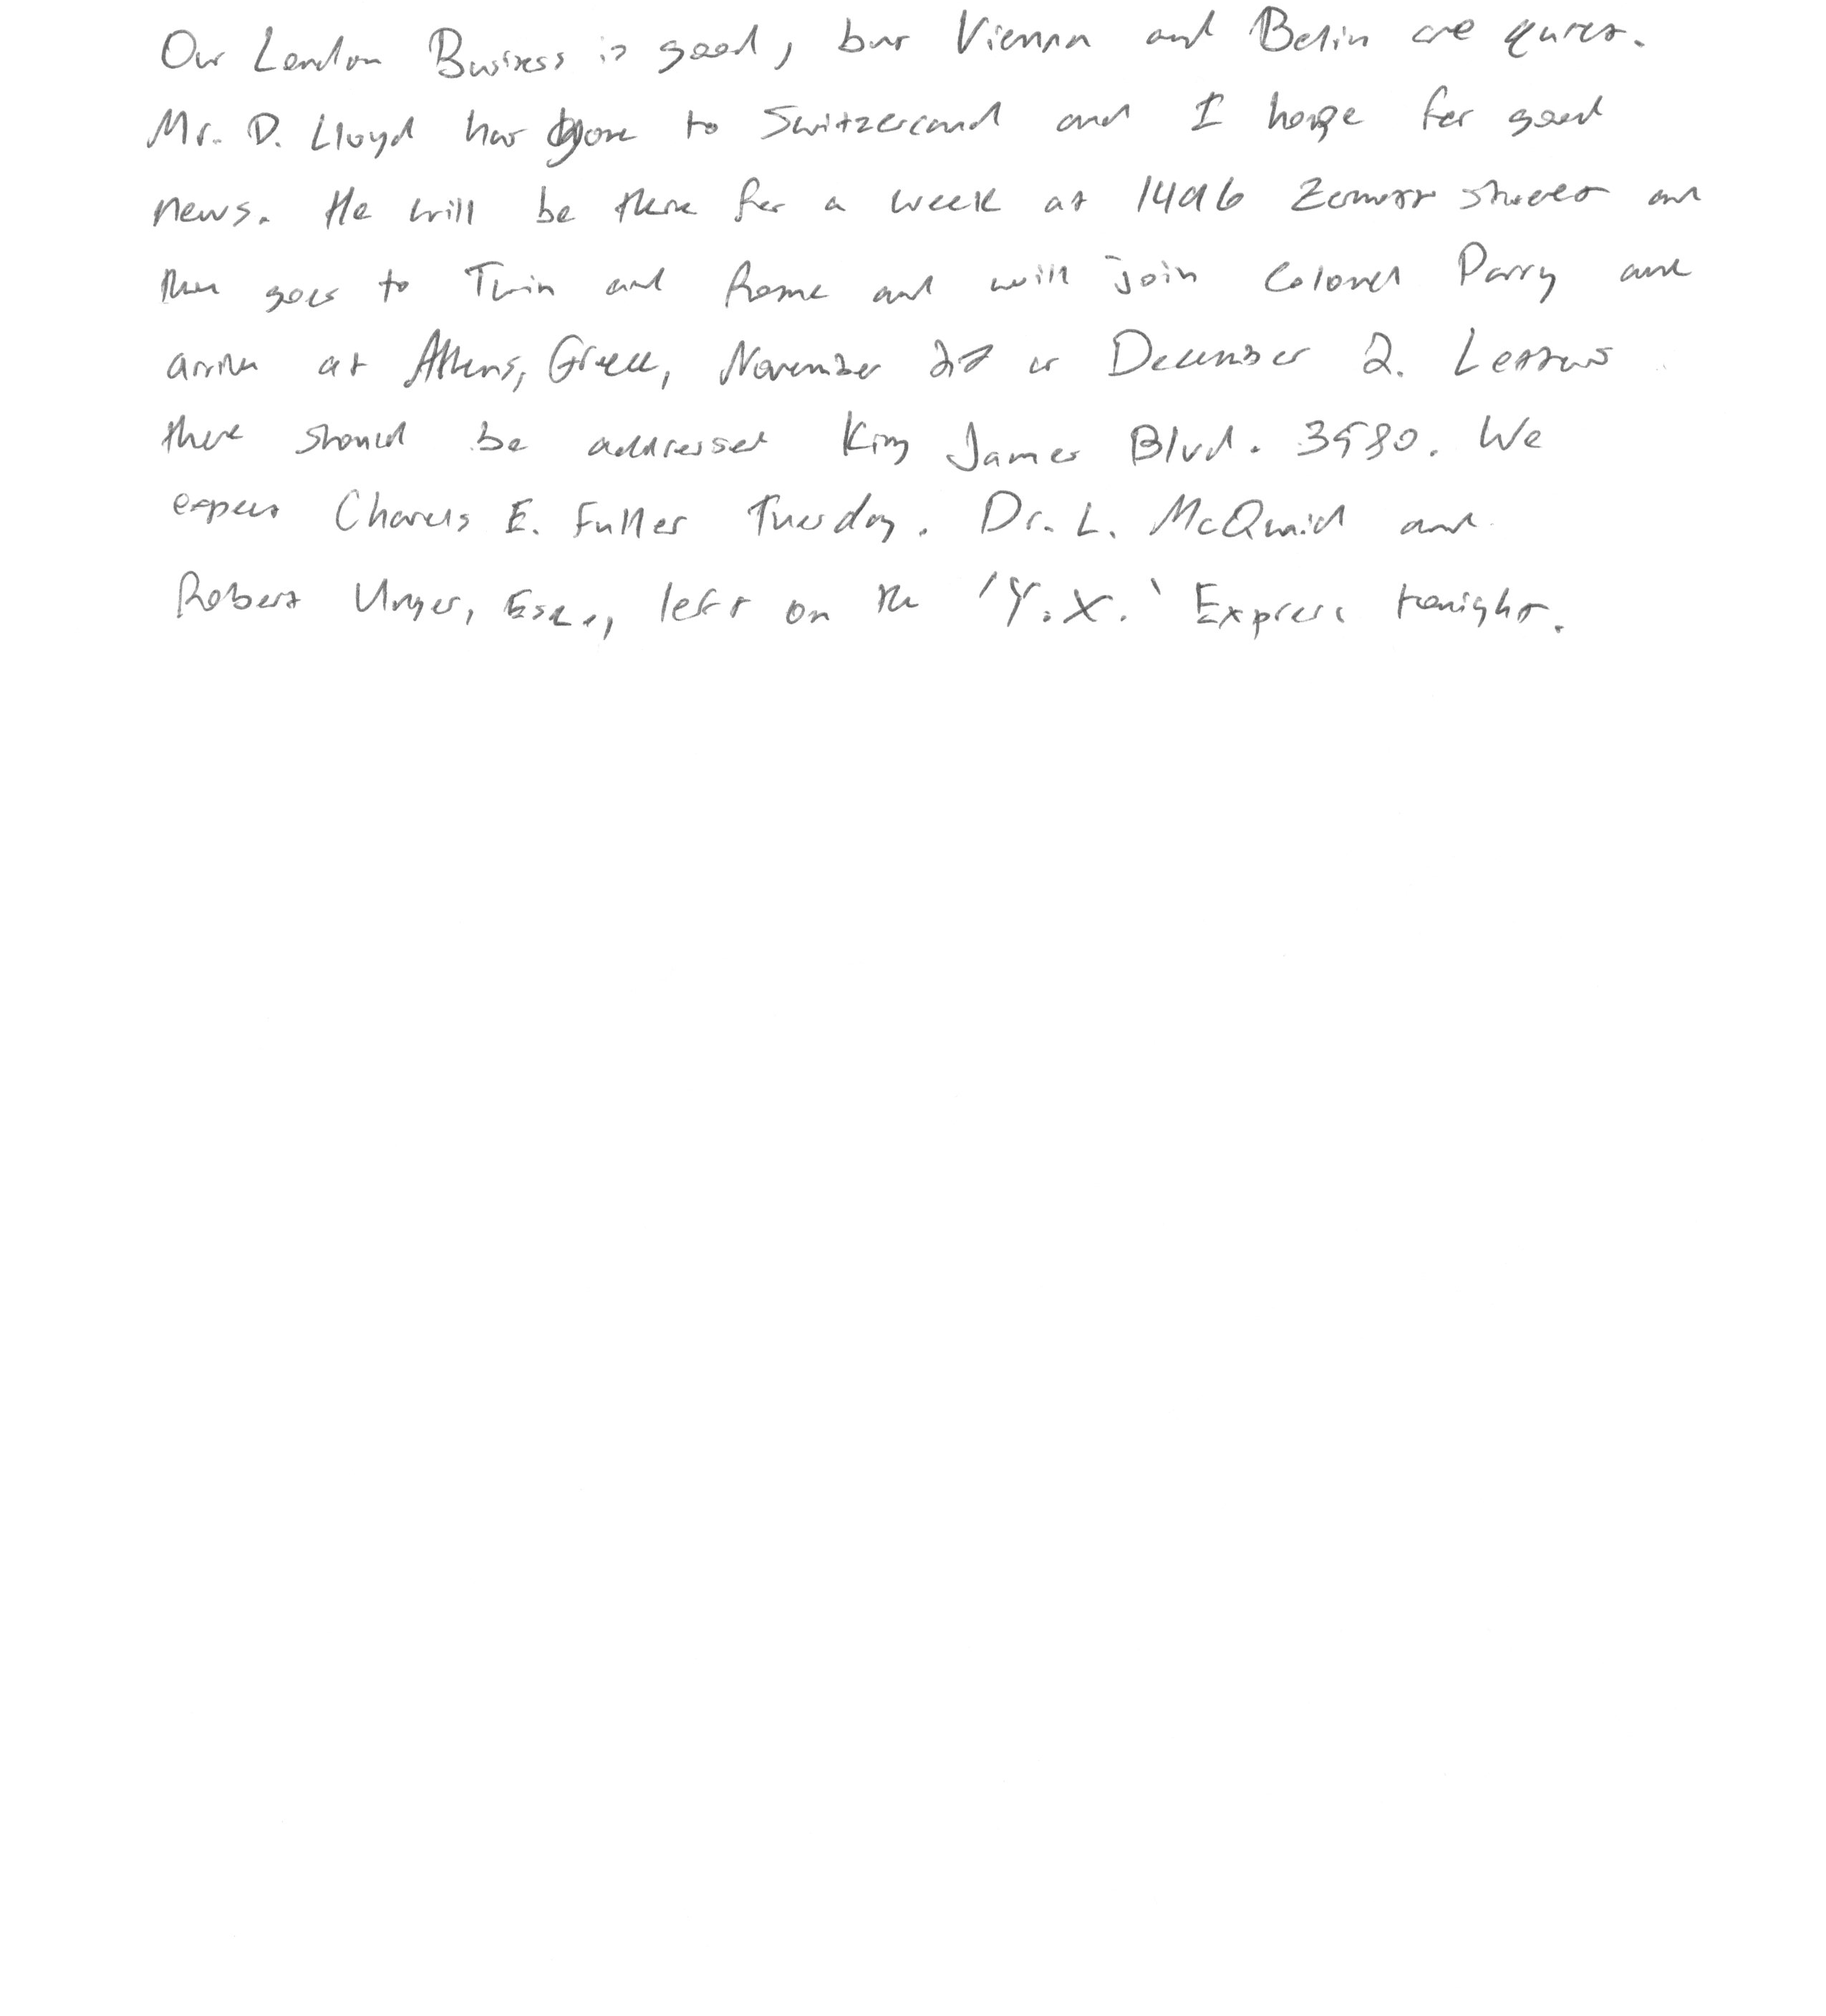 Our London Business is good, but Vienna and Berlin are quiet.
Mr. D. Lloyd has gone to Switzerland and I hope for good
news. He will be there for a week at 1496 Zermott street and
then goes to Turin and Rome and will join Colonel Parry and
arrive at Athens, Greece, November 27 or December 2. Letters
there should be addressed King James Blvd. 3580. We
expect Charles E. Fuller Tuesday. Dr. L. McQuaid and
Robert Unger, Esq., left on the 'Y.X.' Express tonight.